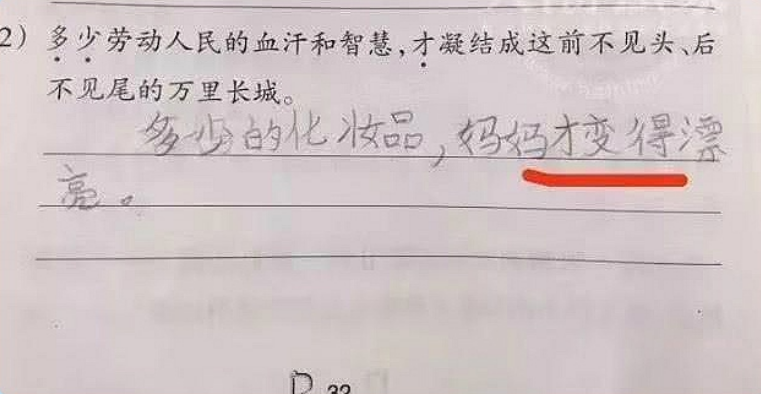 2）多少劳动人民的血汗和智慧,才凝结成这前不见头、后
不见尾的万里长城。
多少的化妆品,妈妈才变得漂
亮。
P 32